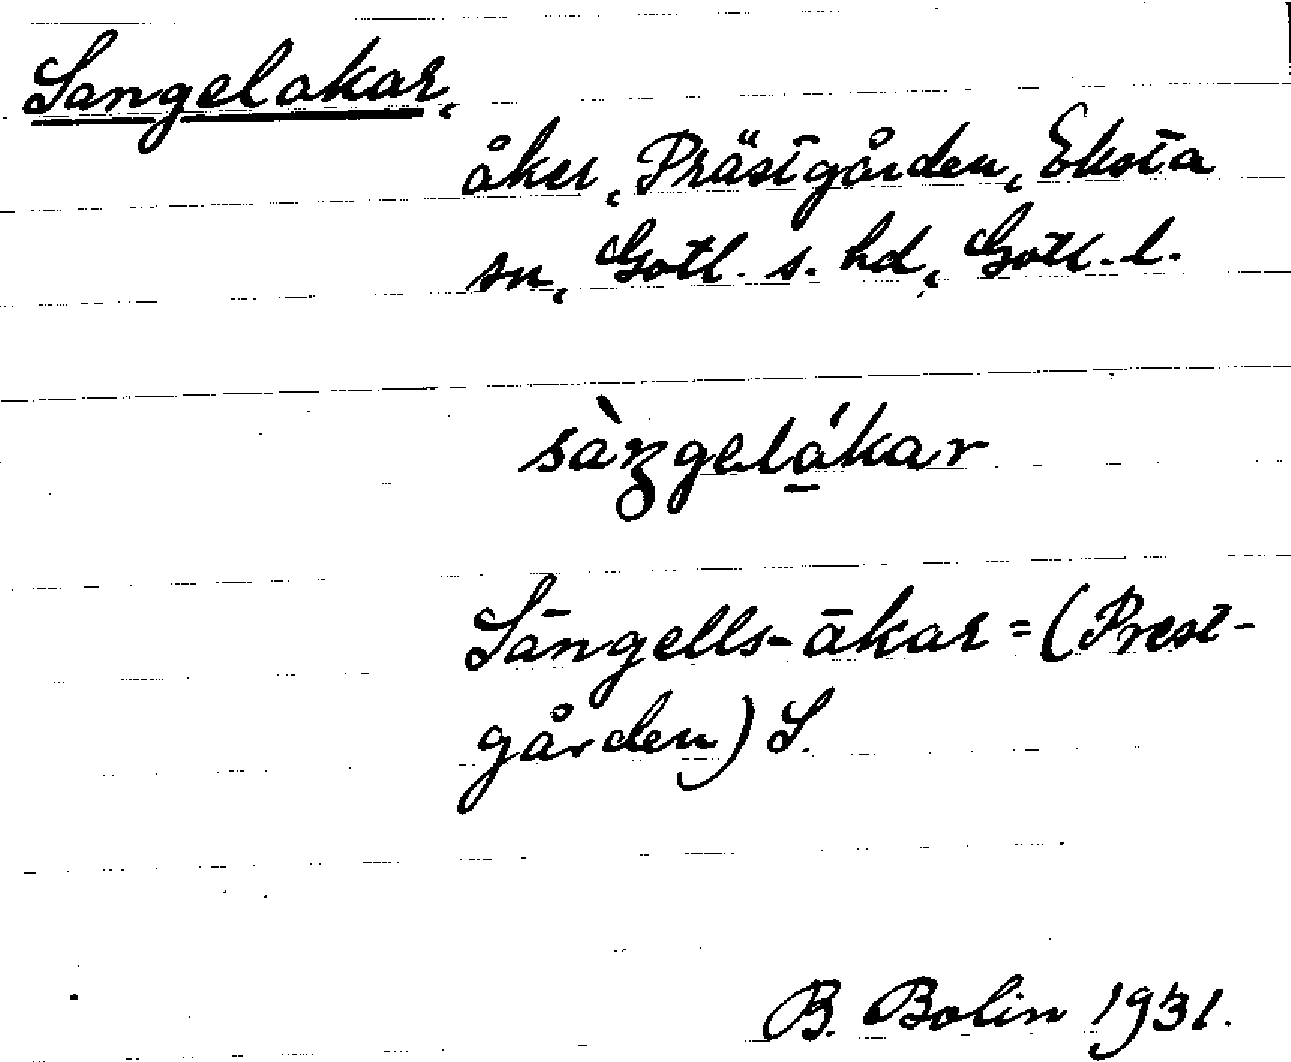 Sangelakar,
åker, Prästgården, Eksta
sn, Gotl. s. hd, Gotl. l.
sàŋgelá̱kar
Sāngells-ākar = (Prest-
gården) S.
B. Bolin 1931.